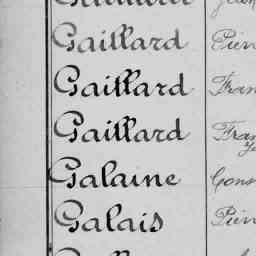 Gaillard Pier
Gaillard Fran
Gaillard Fran
Galaine Cons
Galais Pier